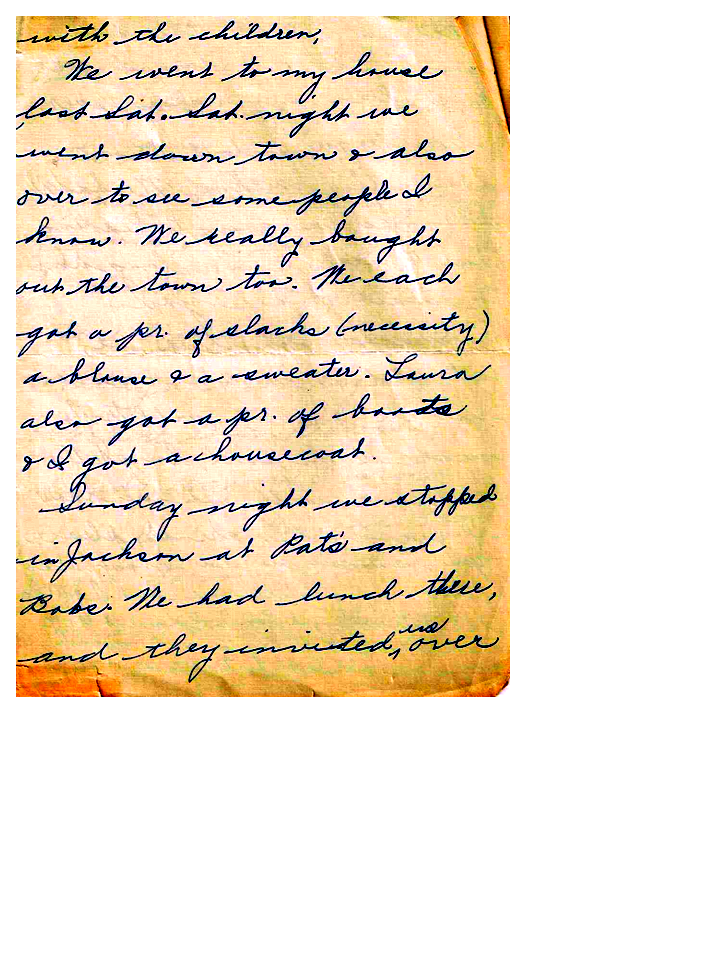 with the children,
We went to my house
last Sat. Sat. night we
went down town & also
over to see some people I
know. We really bought
out the town too. We each
got a pr. of slacks (necessity)
a blouse & a sweater. Laura
also got a pr. of boots
& I got a housecoat.
Sunday night we stopped
in Jackson at Pat's and
Bobs. We had lunch there,
and they invited, us over